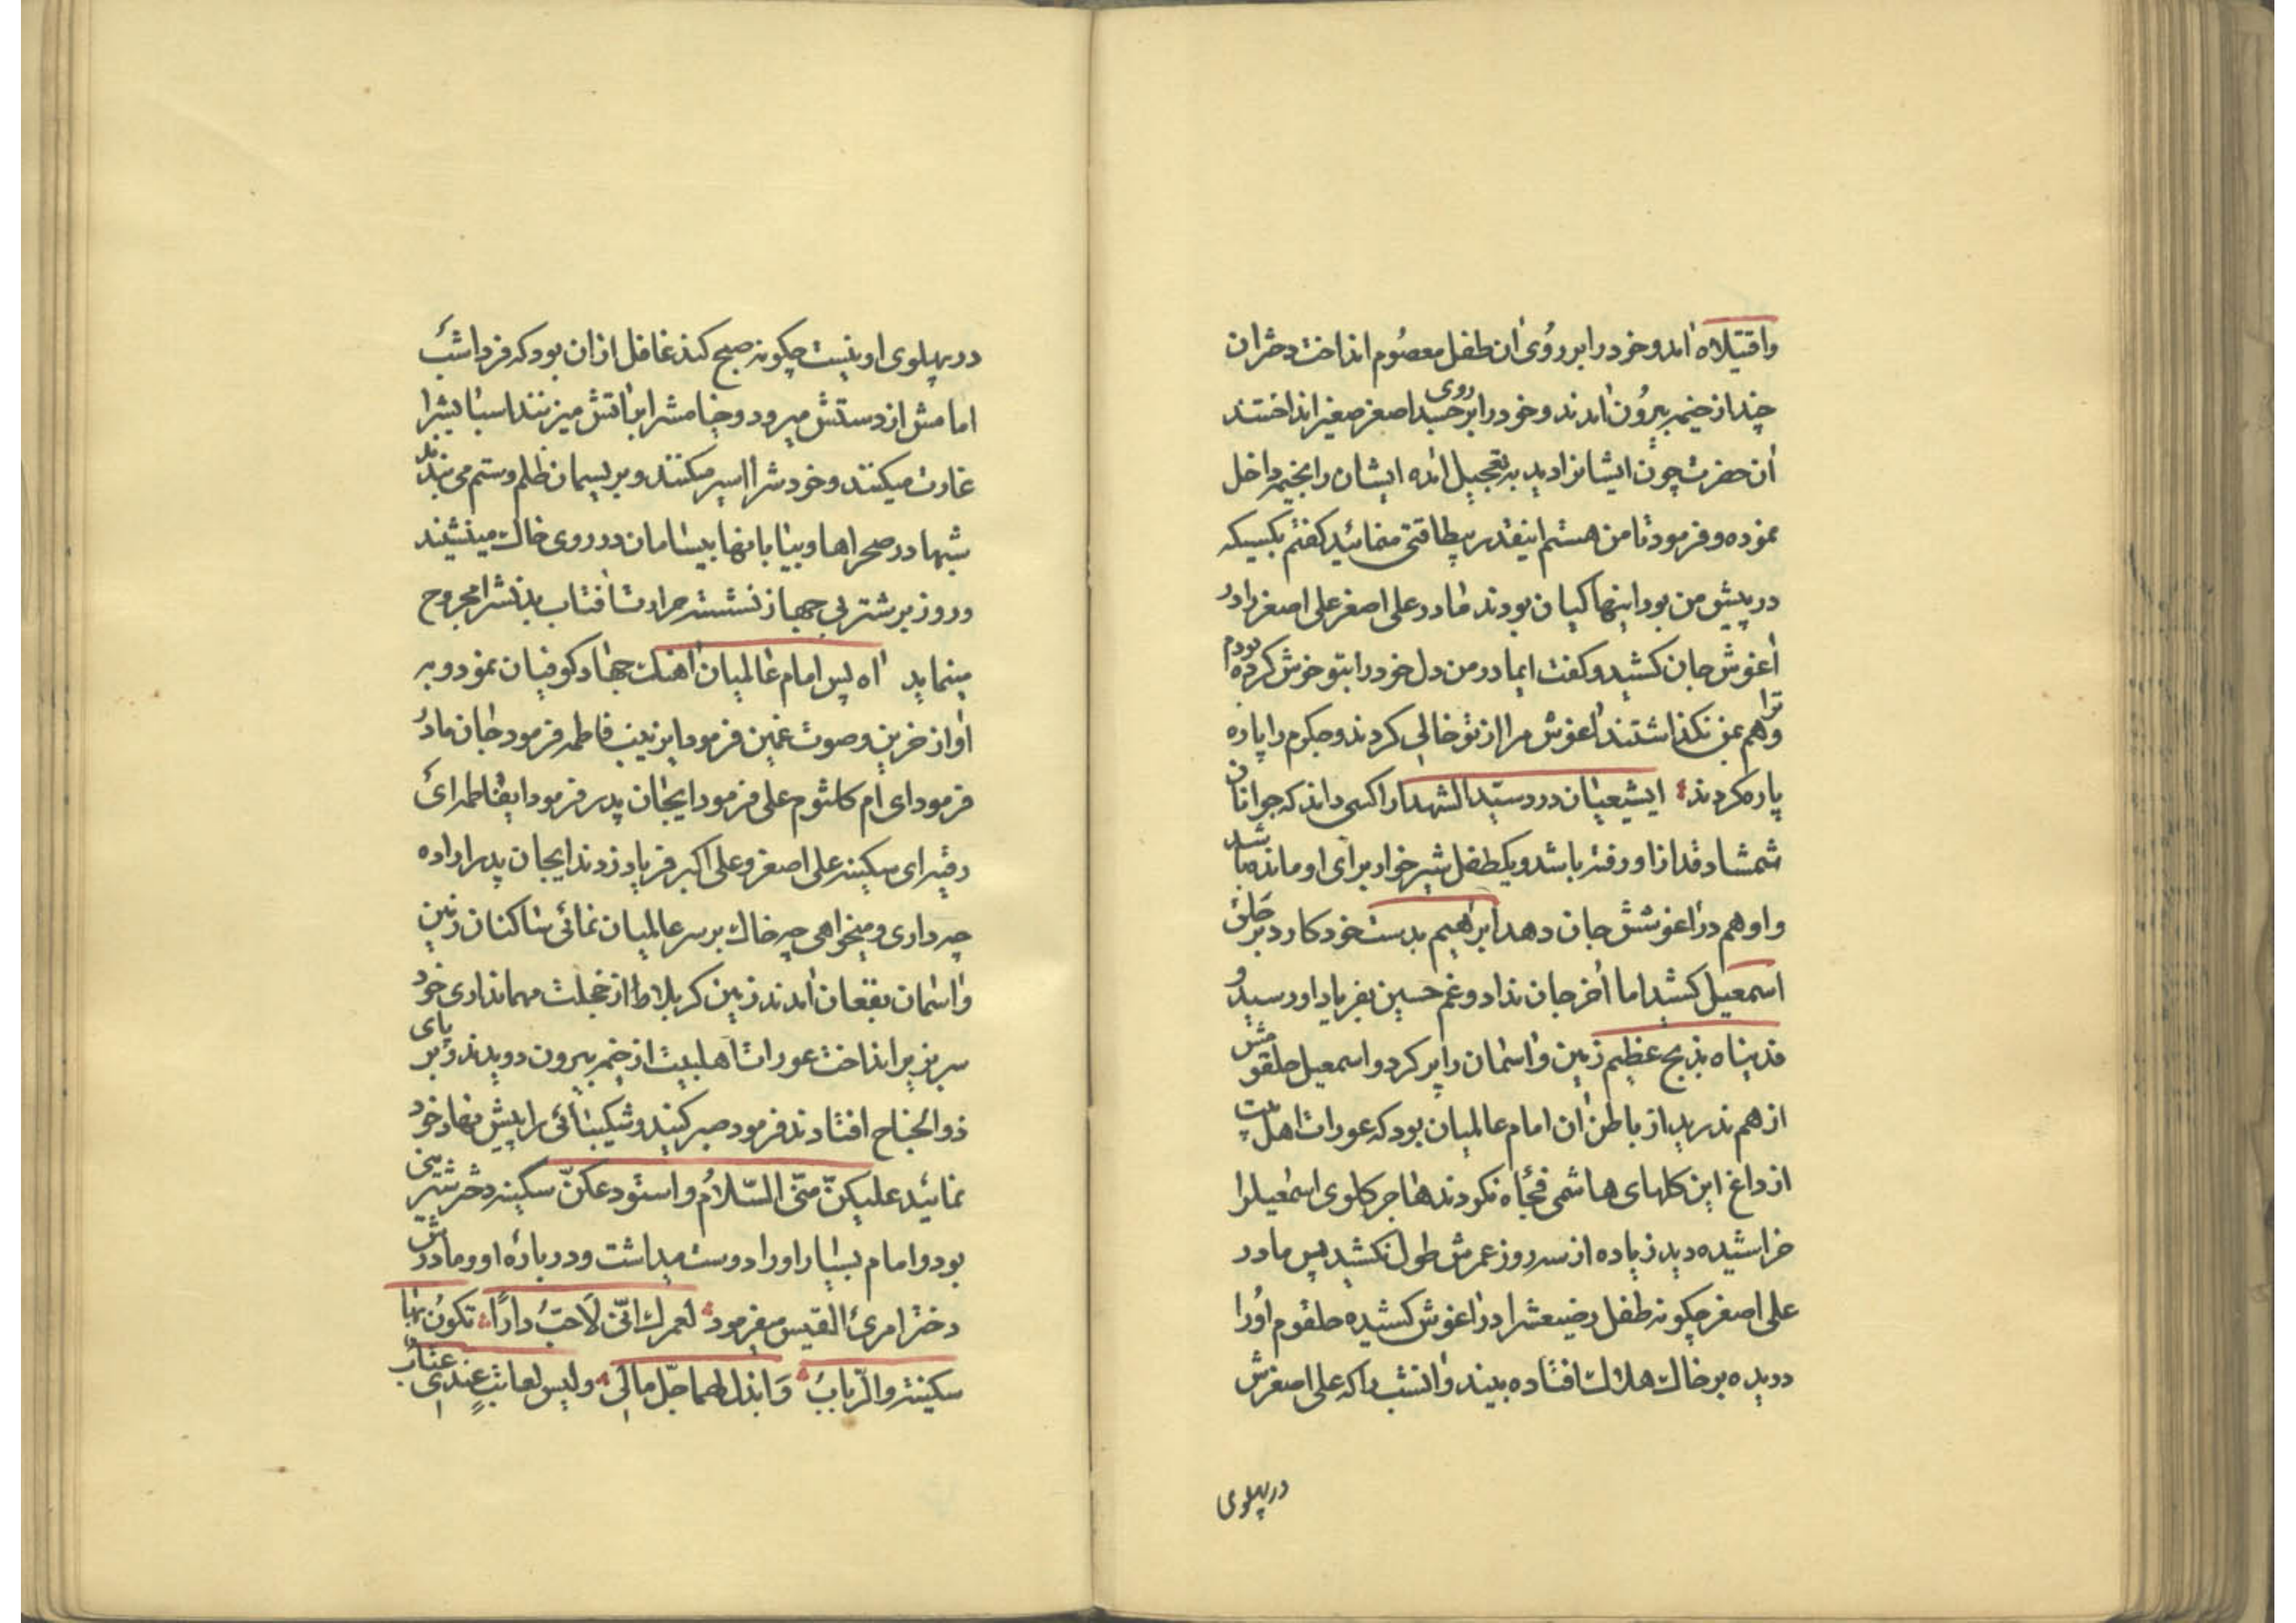 واقتیلاه آمد و خود را بر رؤی آن طفل معصوم انداخت دختران
چند از خیمه بیرون آمدند و خود را بر روی جسد اصغر صغیر انداختند
آن حضرت چون ایشانرا دید به تعجیل آمده ایشان را بخیمه داخل
نموده و فرمود تا من هستم اینقدر بیطاقتی منمائید گفتم بکسیکه
در پیش من بود اینها کیان بودند مادر علی اصغر علی اصغر را در
آغوش جان کشید و گفت ایمادر من دل خود را بتو خوش کرده بودم
ترا هم بمن نگذاشتند آغوش مرا از تو خالی کردند و جگرم را پاره
پاره کردند ایشیعیان درد سیّد الشهدا را کسی داند که جوانان
شمشاد قد از او رفته باشد و یکطفل شیرخوار برای او مانده باشد
و او هم در آغوشش جان دهد ابراهیم بدست خود کارد بر حلق
اسمعیل کشید اما آخر جان نداد و غم حسین بفریاد او رسید و
فدیناه بذبح عظیم زمین و آسمان را پر کرد و اسمعیل حلقومش
از هم ندرید از باطن آن امام عالمیان بود که عورات اهل بیت
از داغ این گلهای هاشمی فجأه نکردند هاجر گلوی اسمعیلرا
خراشیده دید زیاده از سه روز عمرش طول نکشید پس مادر
علی اصغر چگونه طفل رضیعشرا در آغوش کشیده حلقوم اورا
دریده بر خاک هلاکت افتاده بیند و آنشب را که علی اصغرش
در پهلوی
در پهلوی او نیست چگونه صبح کند غافل از آن بود که فردا شب
امامش از دستش میرود و خیامشرا بآتش میزنند اسبابشرا
غارت میکنند و خودشرا اسیر میکنند و بریسمان ظلم و ستم می بندند
شبها در صحراها و بیابانها بیسامان در روی خاک مینشیند
و روز بر شتر بی جهاز نشسته حرارت آفتاب بدنشرا مجروح
مینماید آه پس امام عالمیان آهنگ جهاد کوفیان نمود و به
آواز حزین و صوت غمین فرمود ایزینب فاطمه فرمود جان مادر
فرمود ای ام کلثوم علی فرمود ایجان پدر فرمود ایفاطمه ای
رقیه ای سکینه علی اصغر و علی اکبر فریاد زدند ایجان پدر اراده
چه داری و میخواهی چه خاک بر سر عالمیان نمائی ساکنان زمین
و آسمان بفغان آمدند زمین کربلا از خجلت مهمانداری خود
سر بزیر انداخت عورات اهلبیت از خیمه بیرون دویدند و بر پای
ذوالجناح افتادند فرمود صبر کنید و شکیبائی را پیش نهاد خود
نمائید علیکنّ منّی السّلامُ و استودعکنّ سکینه دختر شیرینی
بود و امام بسیار او را دوست میداشت و در بارهٔ او و مادرش
دختر امرئ القیس میفرمود لعمرک انّنی لَاُحبّ دارًا تکونُ بها
سکینة والرّبابُ وَ ابذل لهما جلّ مالی ولیس لعاتبٍ عندی عتابُ